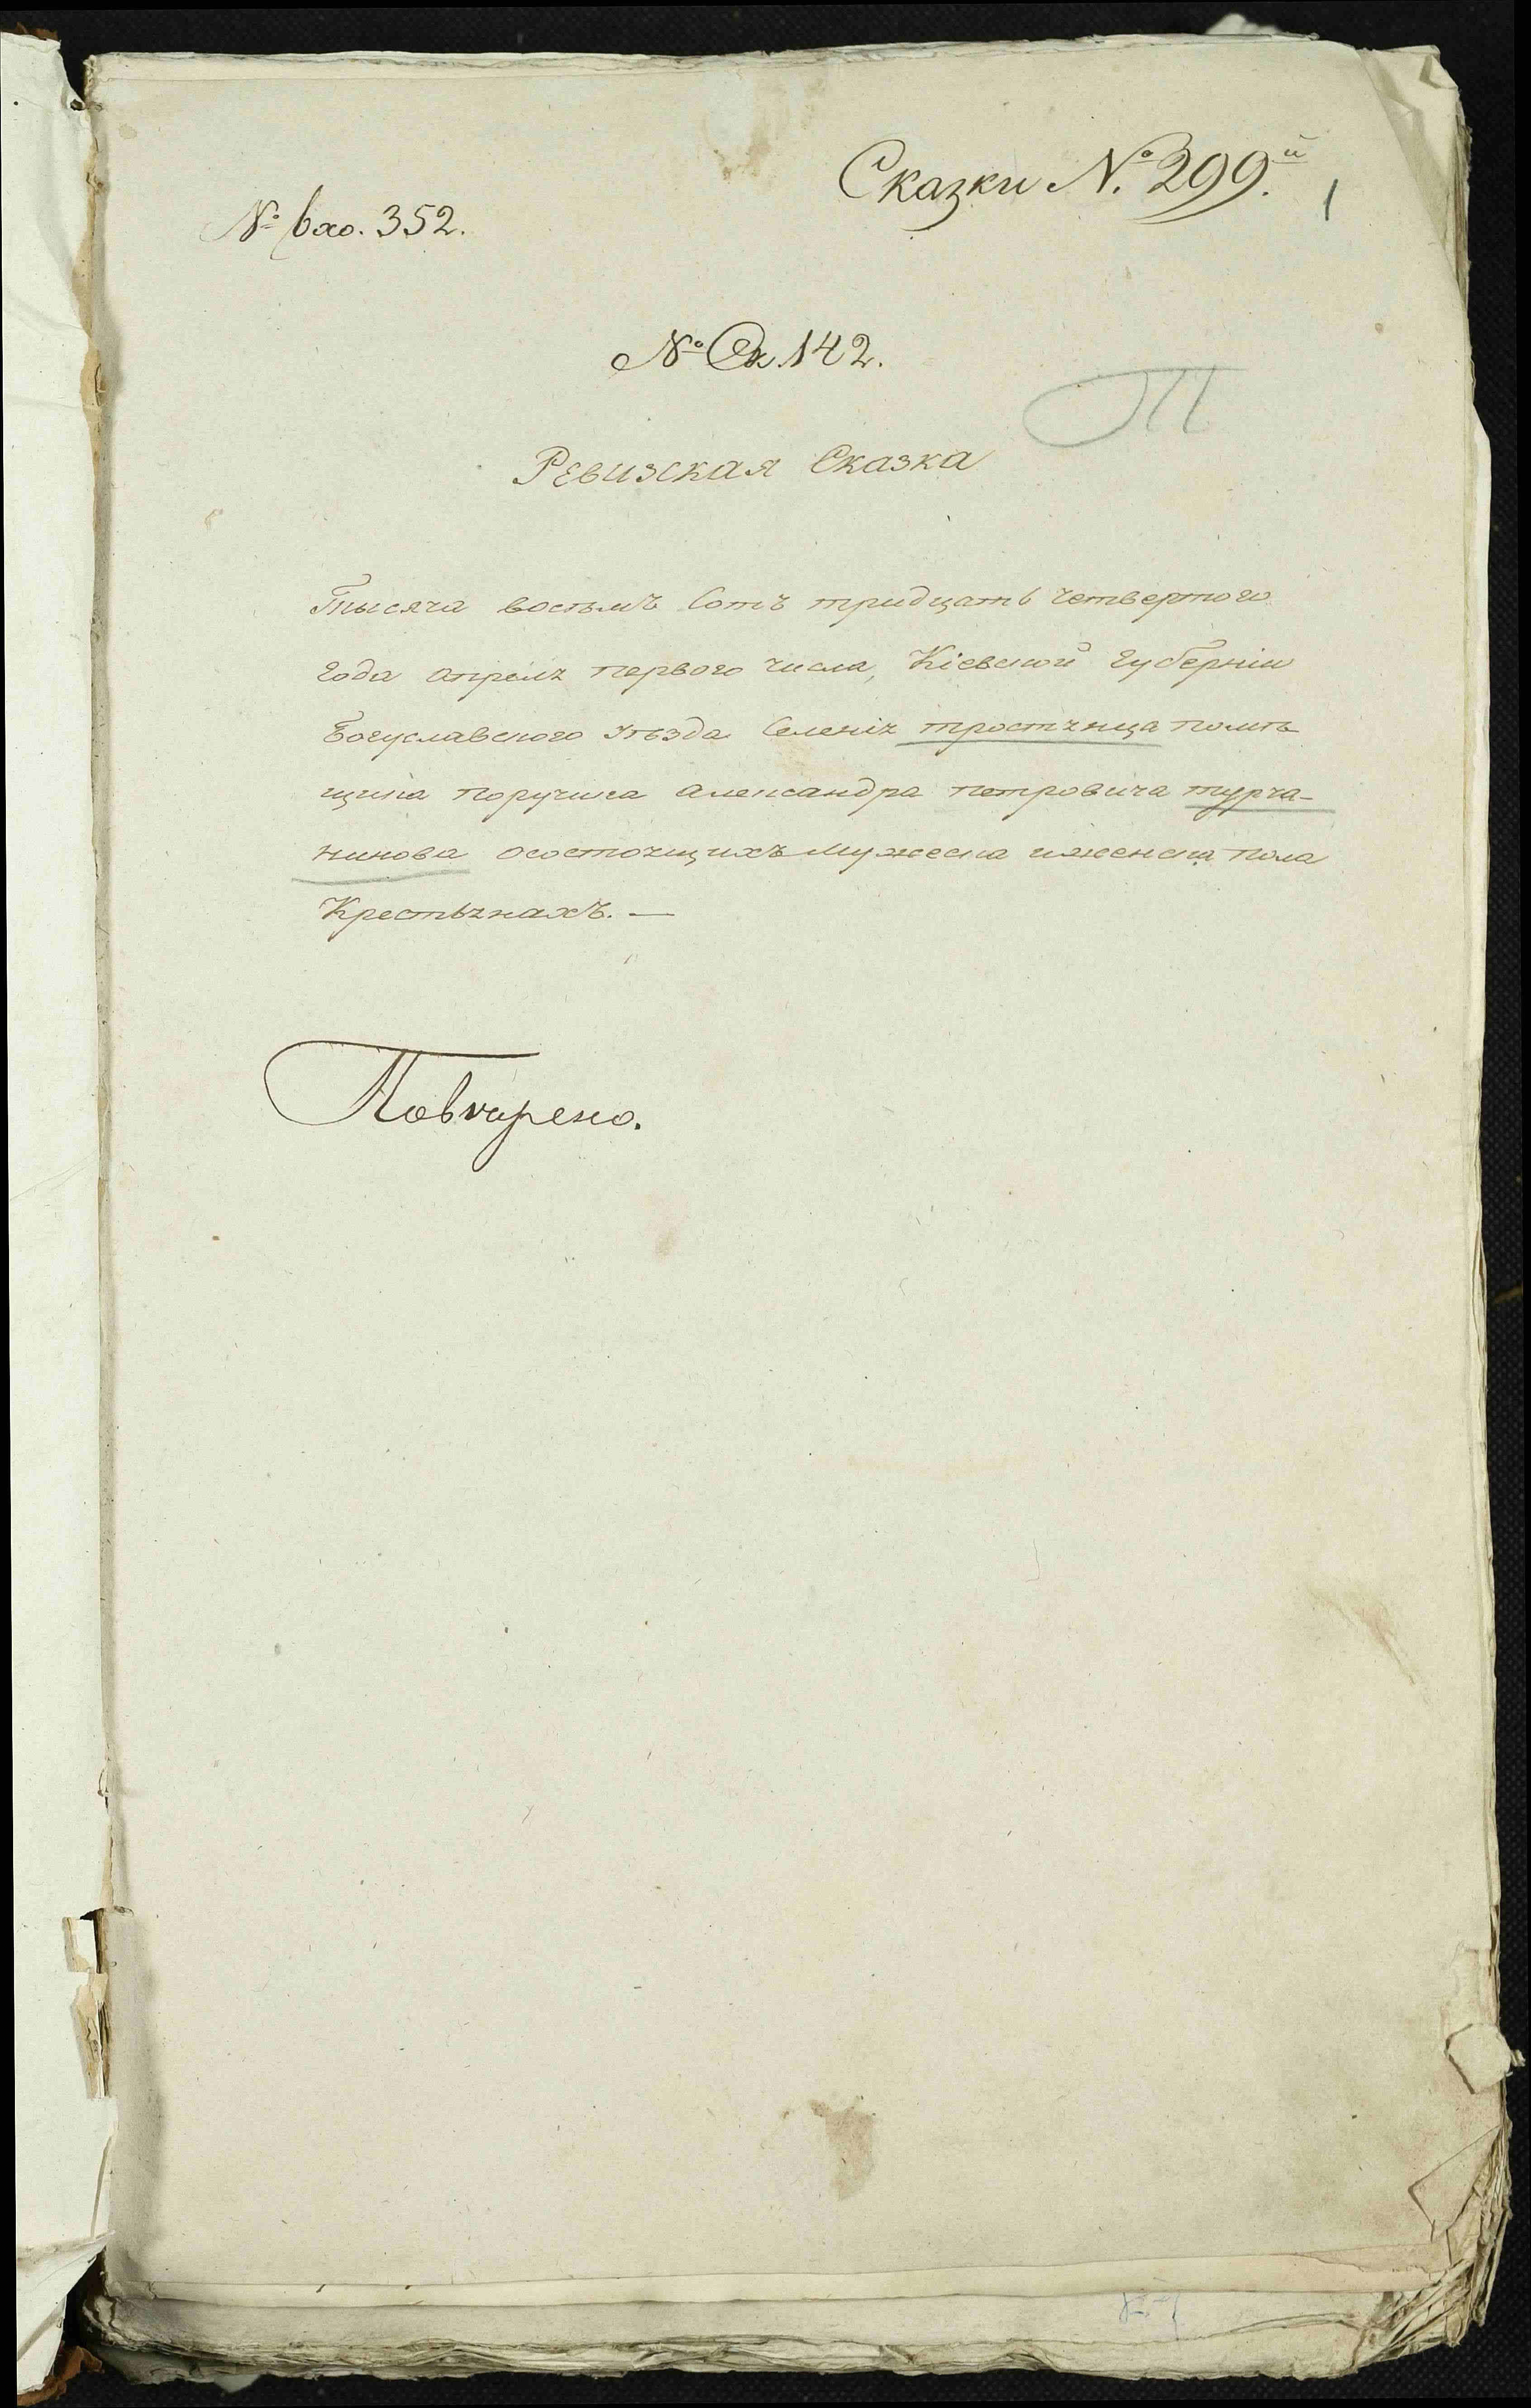 Сказки №. 299.й
1
№ вхо. 352.
№ Ск 142.
П
Ревизская Сказка
Тысяча восъмъ Сотъ тридцать четвертого
года апреля первого числа, Кіевской губерніи
Богуславского Уѣзда Селенія тростянца помѣ
щика поручика александра петровича турча-
нинова осостоящихъ мужеска иженска пола
Крестьянахъ. —
Повѣрено.